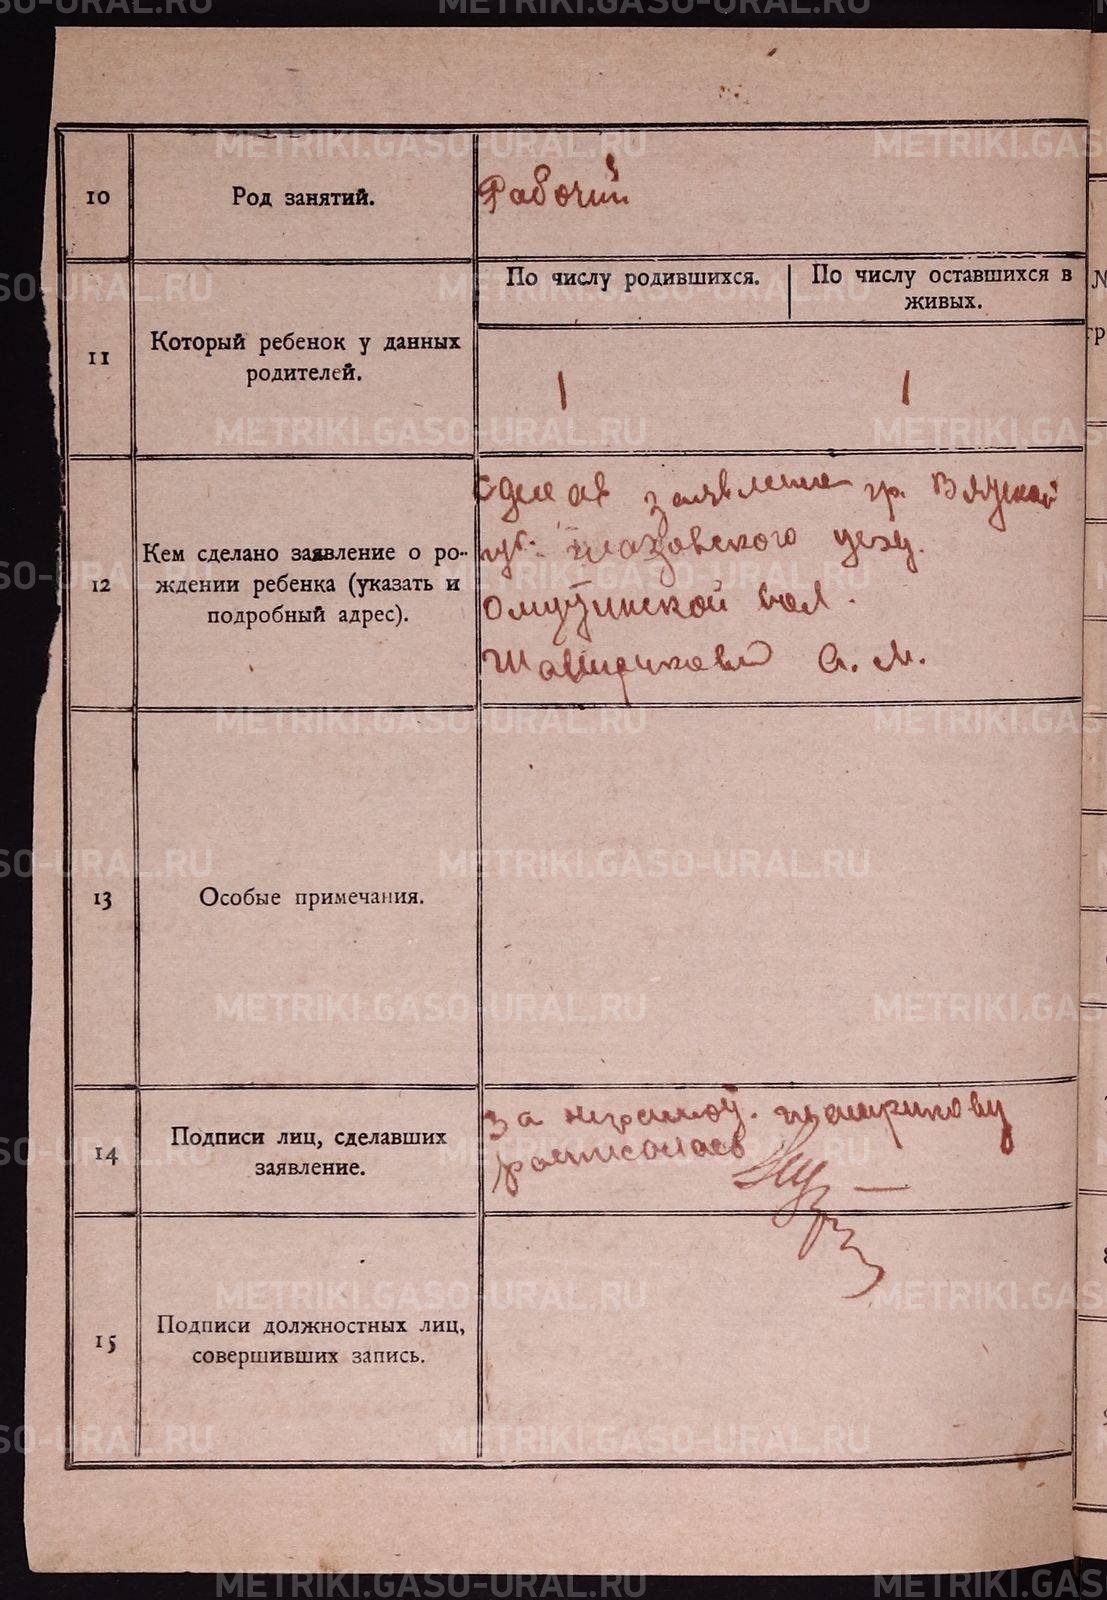 10
Род занятий.
Рабочий
11
Который ребенок у данных
родителей.
По числу родившихся.
По числу оставшихся в
живых.
1
1
12
Кем сделано заявление о ро-
ждении ребенка (указать и
подробный адрес).
заявление гр. Вяцкой
губ. Глазовского уезд.
Омутнинской вол.
А. М.
13
Особые примечания.
14
Подписи лиц, сделавших
заявление.
За
расписалась
15
Подписи должностных лиц,
совершивших запись.
METRIKI.GASO-URAL.RU